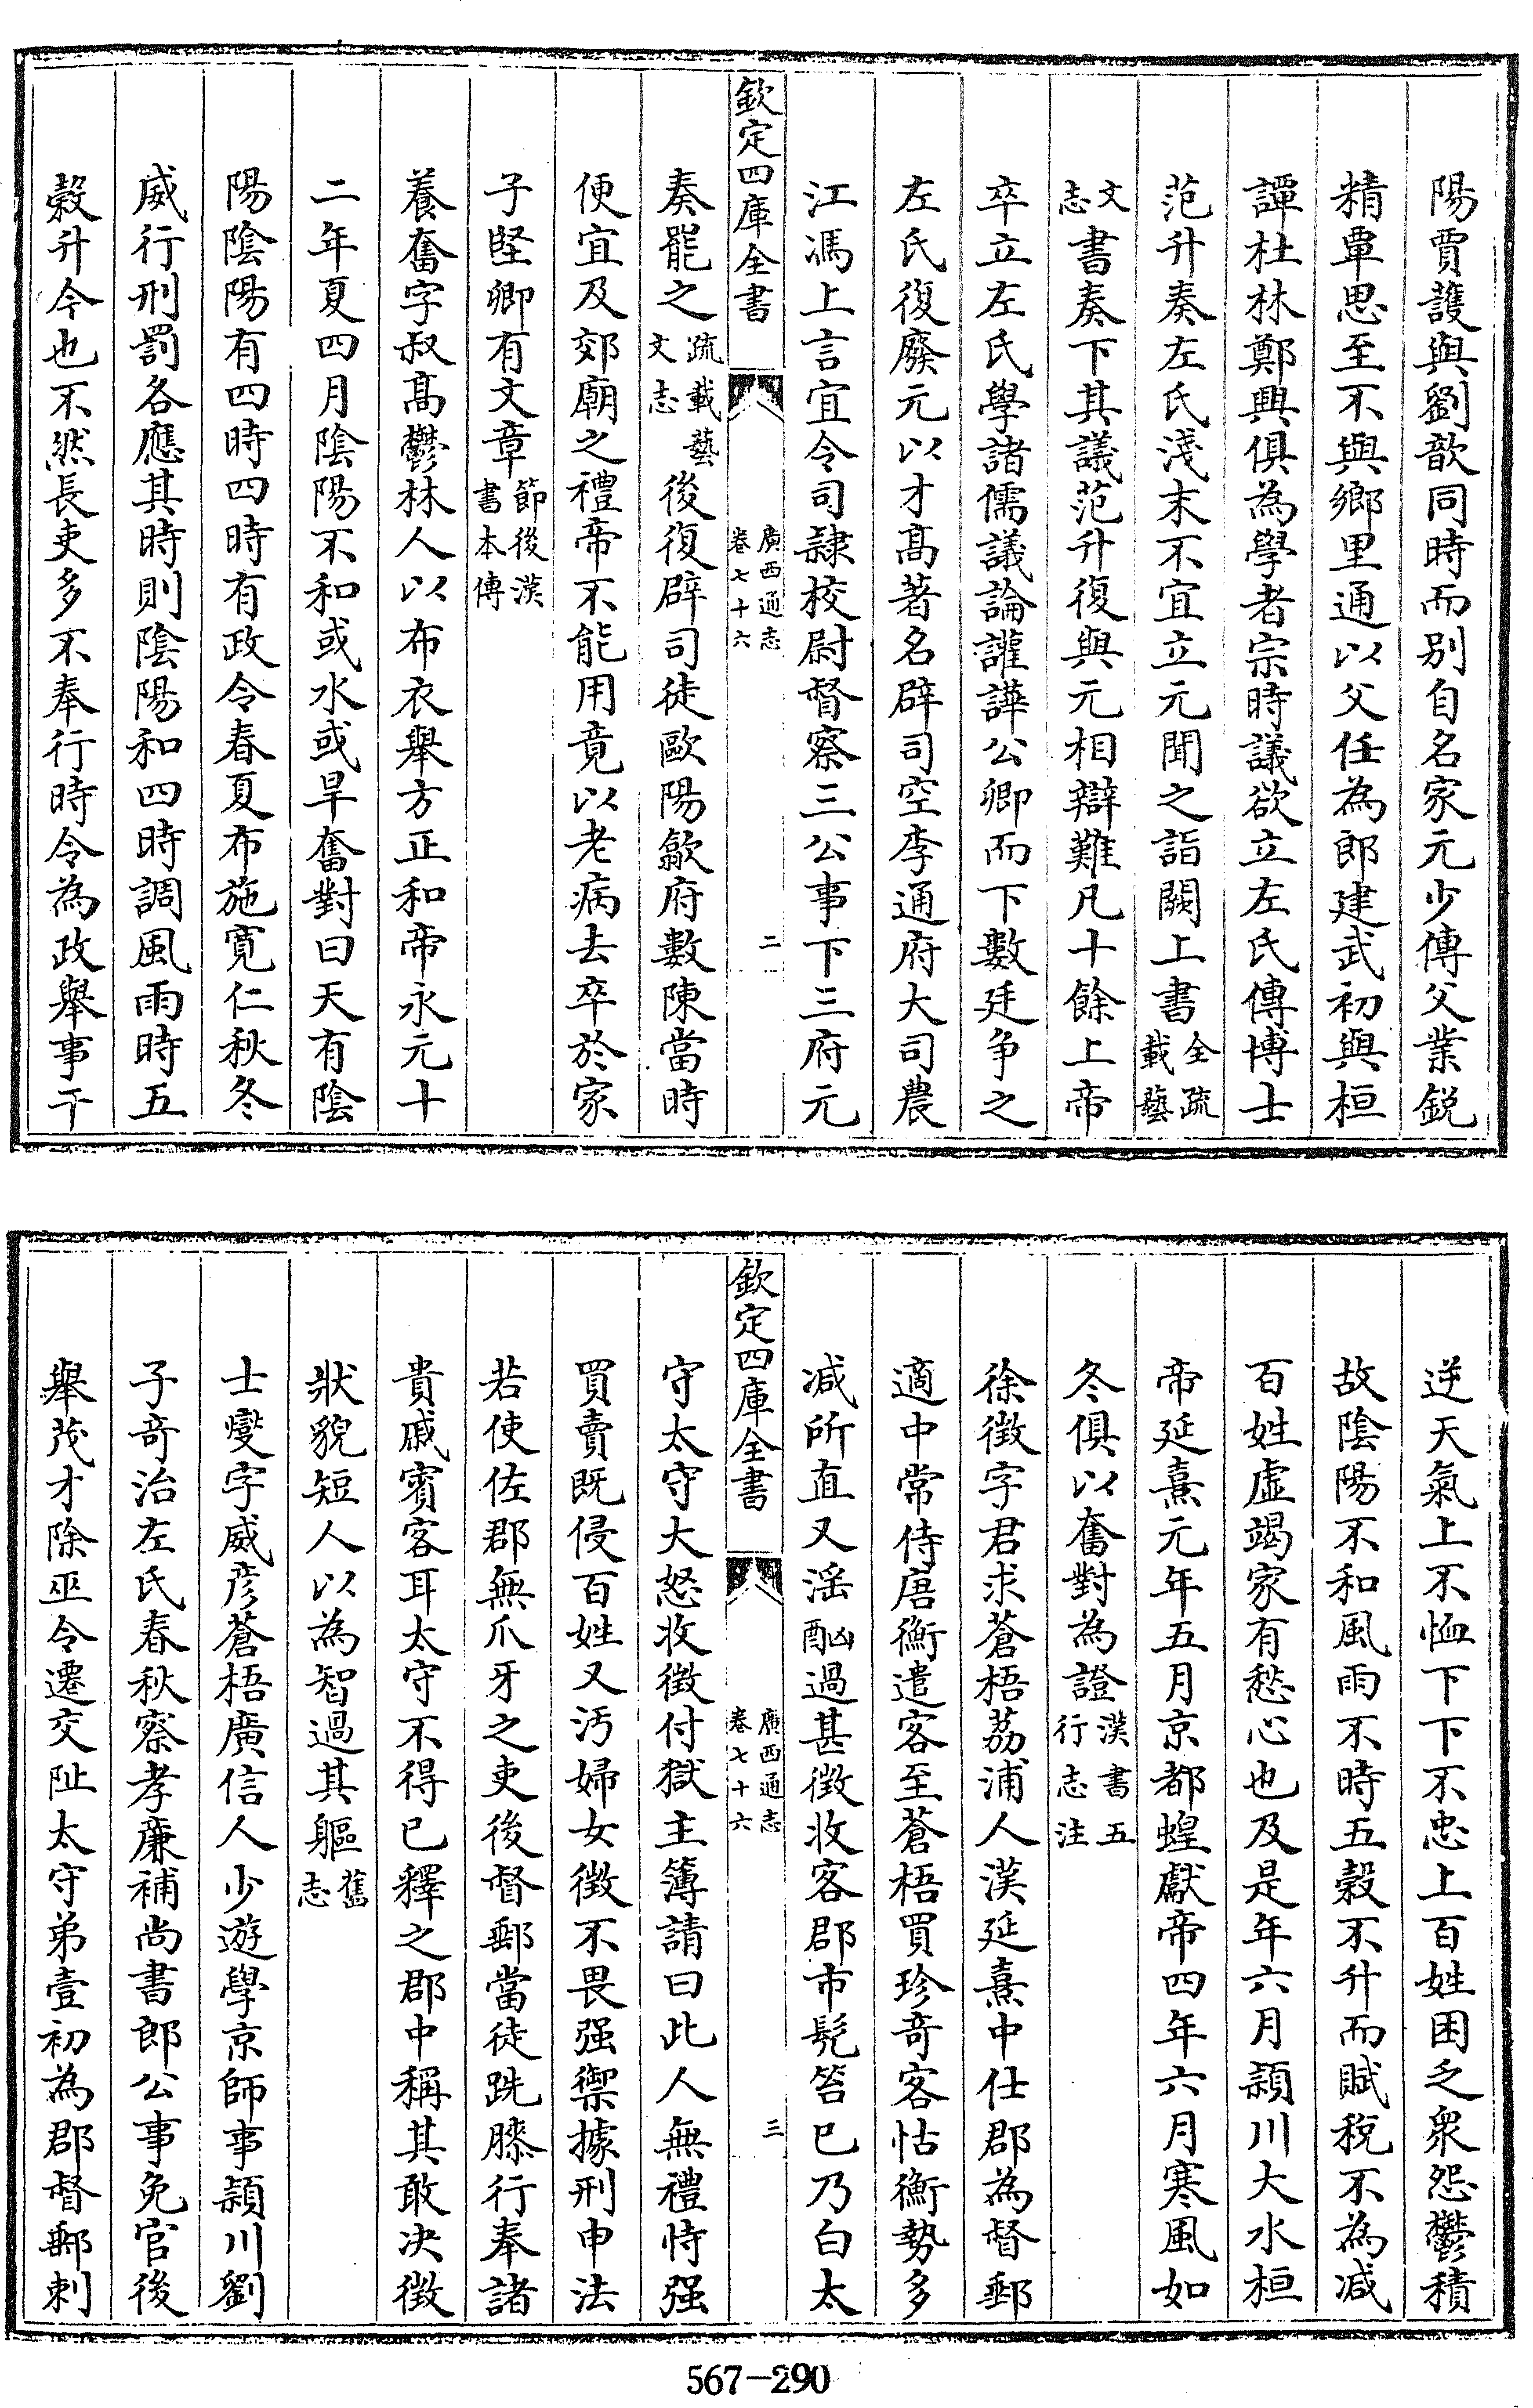 陽賈護與劉歆同時而别自名家元少傳父業鋭
精覃思至不與鄉里通以父任為郎建武初與桓
譚杜林鄭興俱為學者宗時議欲立左氏傳博士
范升奏左氏淺末不宜立元聞之詣闕上書全疏載藝
文志書奏下其議范升復與元相辯難凡十餘上帝
卒立左氏學諸儒議論讙譁公卿而下數廷争之
左氏復廢元以才髙著名辟司空李通府大司農
江馮上言宜令司隷校尉督察三公事下三府元
欽定四庫全書
廣西通志
卷七十六
二
奏罷之疏載藝文志後復辟司徒歐陽歙府數陳當時
便宜及郊廟之禮帝不能用竟以老病去卒於家
子堅卿有文章節後漢書本傳
養奮字叔髙鬱林人以布衣舉方正和帝永元十
二年夏四月陰陽不和或水或旱奮對曰天有陰
陽陰陽有四時四時有政令春夏布施寛仁秋冬
威行刑罰各應其時則陰陽和四時調風雨時五
穀升今也不然長吏多不奉行時令為政舉事干
逆天氣上不恤下下不忠上百姓困乏衆怨鬱積
故陰陽不和風雨不時五穀不升而賦稅不為减
百姓虛竭家有愁心也及是年六月潁川大水桓
帝延熹元年五月京都蝗獻帝四年六月寒風如
冬俱以奮對為證漢書五行志注
徐徴字君求蒼梧荔浦人漢延熹中仕郡為督郵
適中常侍唐衡遣客至蒼梧買珍奇客怙衡勢多
减所直又滛酗過甚徴收客郡市髡笞已乃白太
欽定四庫全書
廣西通志
卷七十六
三
守太守大怒收徴付獄主簿請曰此人無禮恃强
買賣既侵百姓又汚婦女徴不畏强禦據刑申法
若使佐郡無爪牙之吏後督郵當徒跣膝行奉諸
貴戚賓客耳太守不得已釋之郡中稱其敢决徴
狀貌短人以為智過其軀舊志
士燮字威彦蒼梧廣信人少遊學京師事潁川劉
子奇治左氏春秋察孝廉補尚書郎公事免官後
舉茂才除巫令遷交阯太守弟壹初為郡督郵刺
567-290